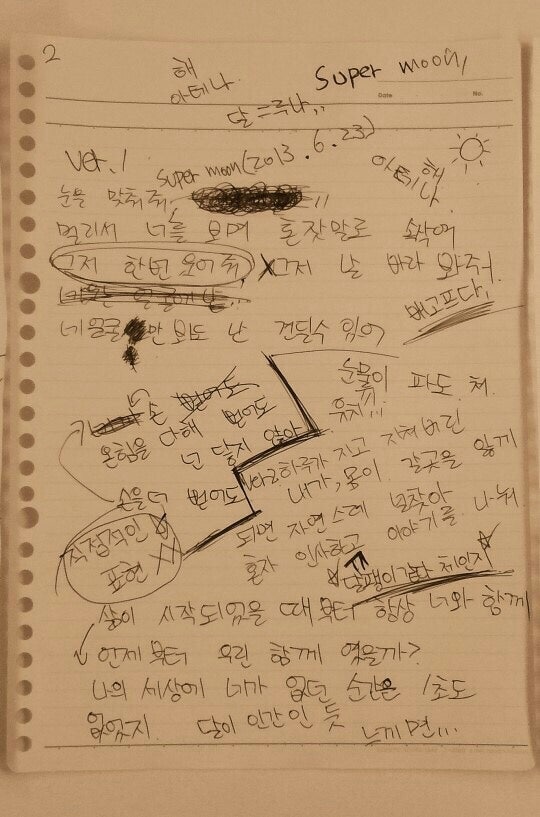 2
해
아테나.
Super moon,
Date
No.
달=루나..
Ver. 1
Super moon(2013.6.23)
아테나 해
눈을 맞춰줘,
멀리서 너를 보며 혼잣말로 속삭여
그저 한번 웃어줘, 그저 날 바라 봐줘
배고프다,
네얼굴 만 봐도 난 견딜수 있어
눈물이 파도 쳐.
유치...
손 뻗어도
온힘을 다해 뻗어도
넌 닿지 않아
손을 더 뻗어도
직접적인
표현
Ver2 하루가 지고 지쳐버린
내가, 몸이 갈곳을 잃게
되면 자연스레 널찾아
혼자 인사하고 이야기를 나눠
달팽이같다 체인지
삶이 시작되었을 때부터 항상 너와 함께
언제부터 우린 함께 였을까?
나의 세상에 너가 없던 순간은 1초도
없었지. 달이 인간인 듯 느끼면...